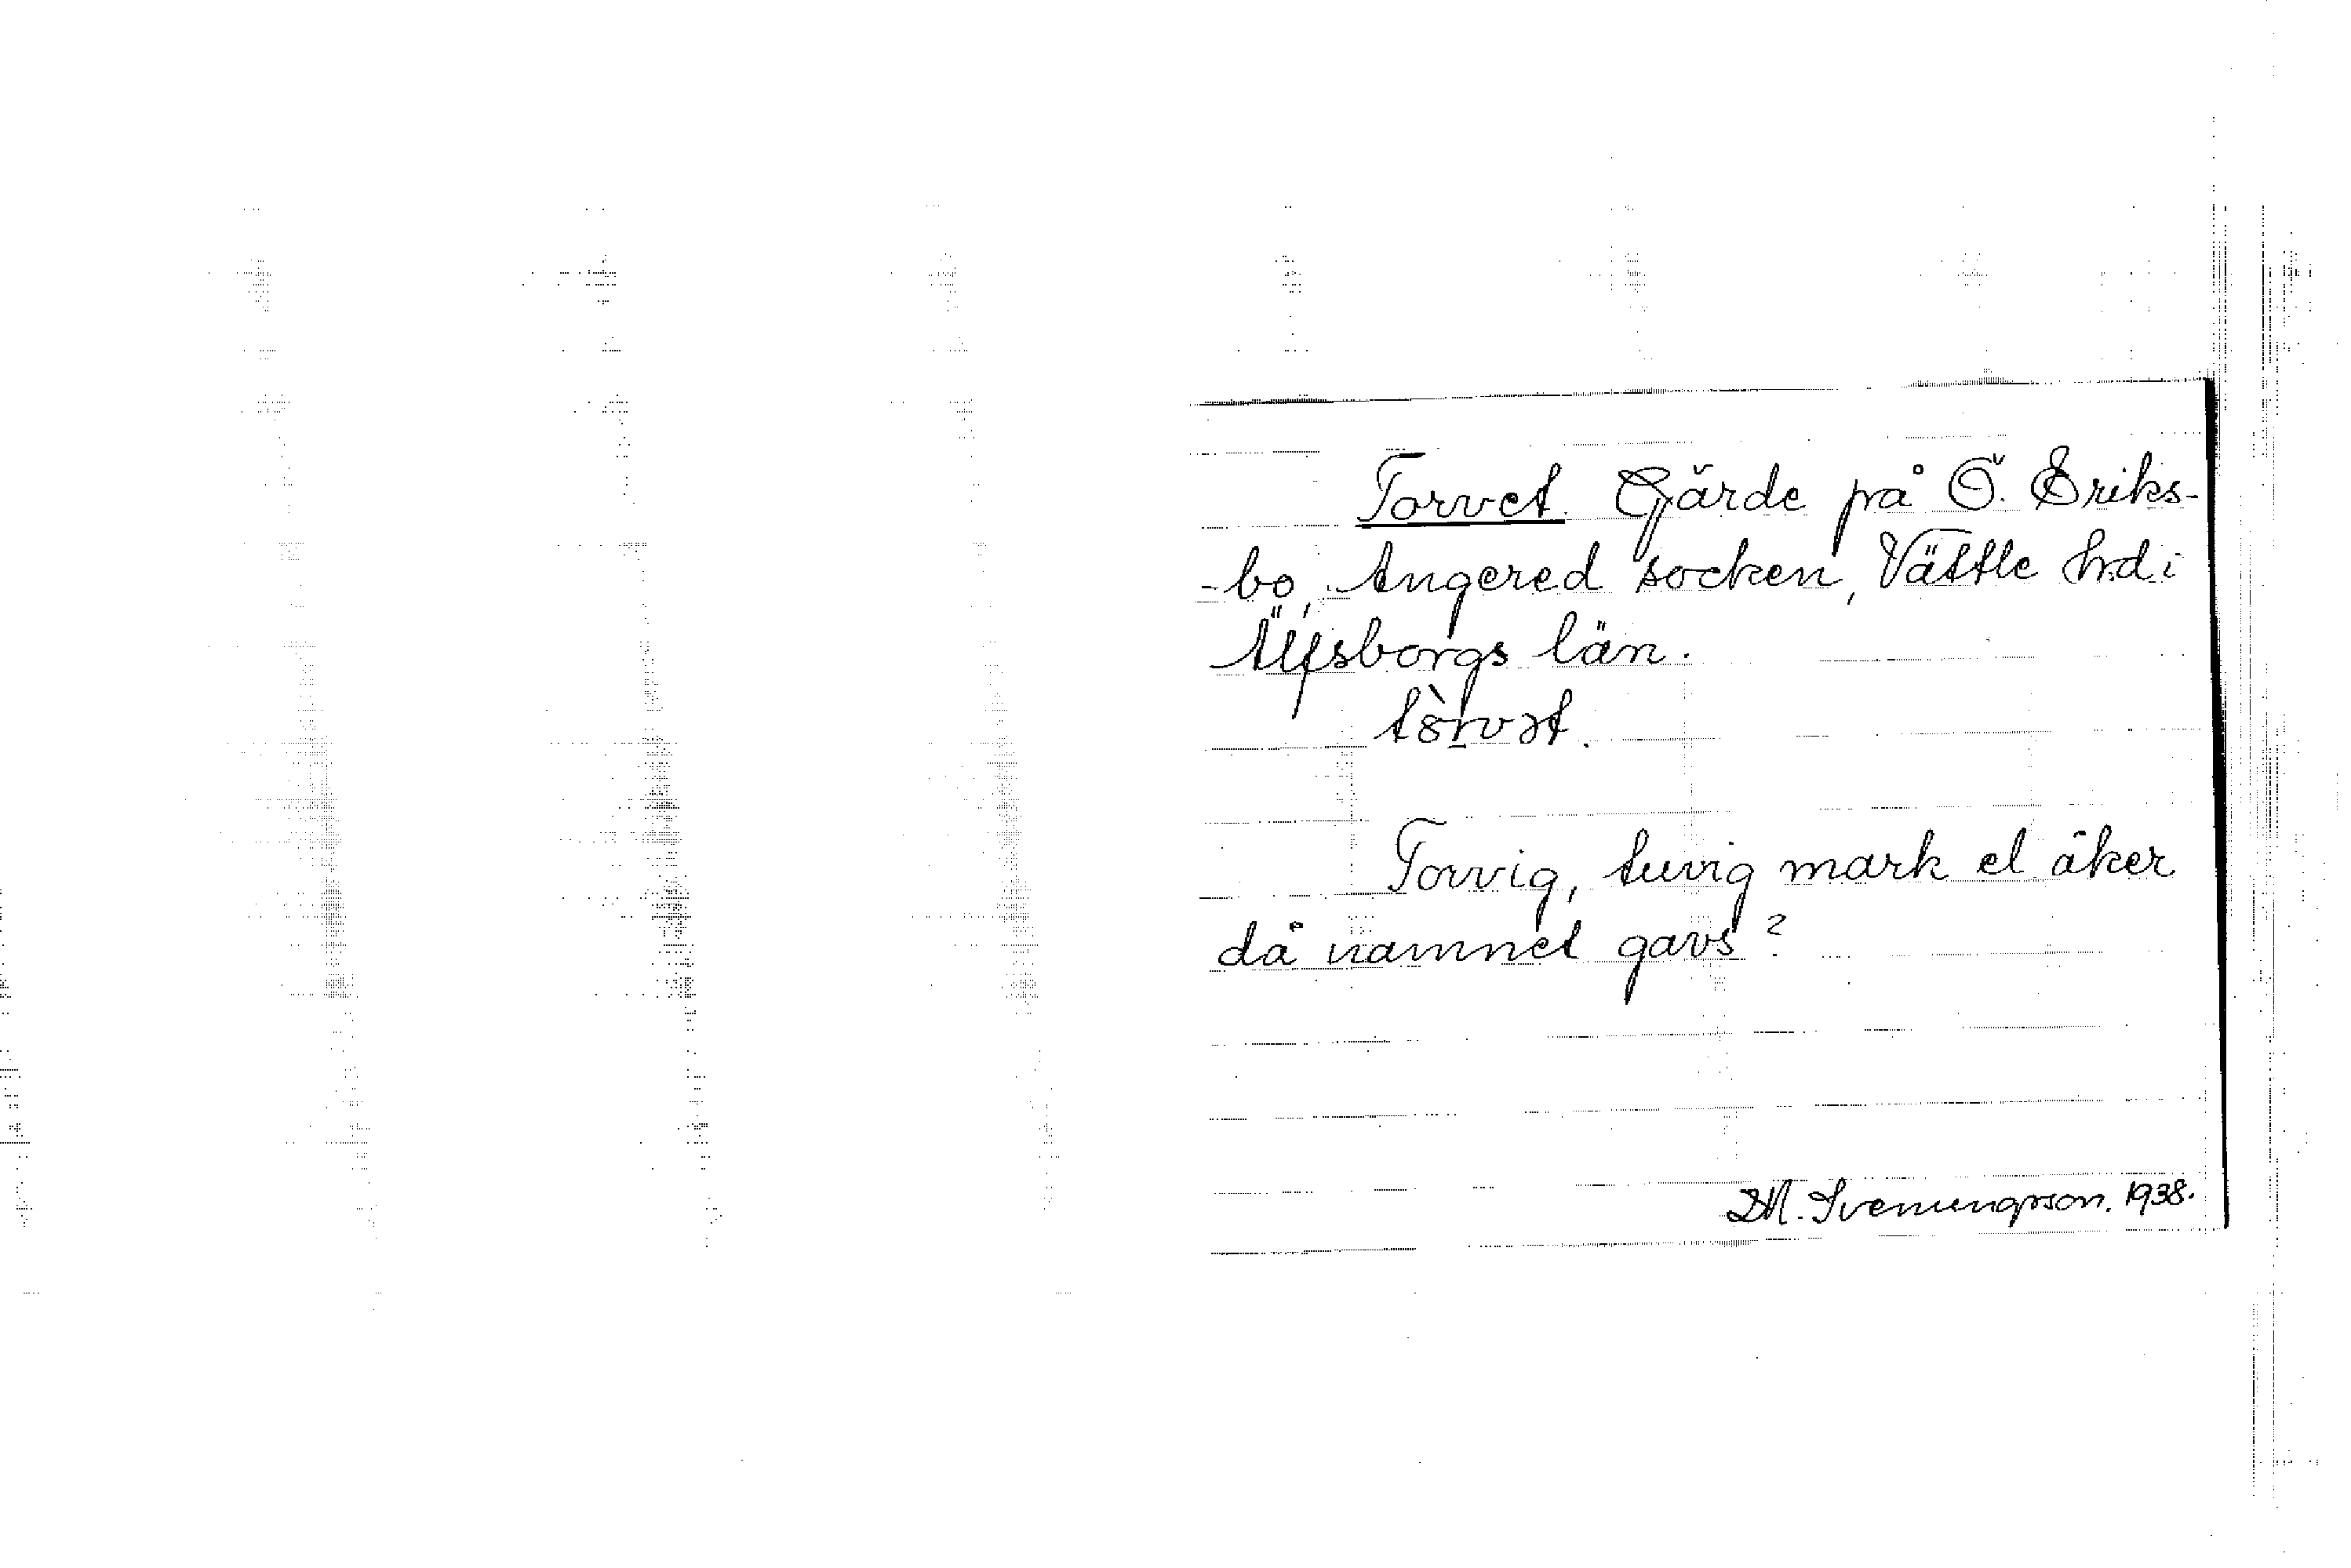 Torvet. Gärde på Ö. Eriks-
-bo, Angered socken, Vättle hd i
Älfsborgs län.
Torvig, tuvig mark el åker
då namnet gavs?
D.M. Svenungsson. 1938.